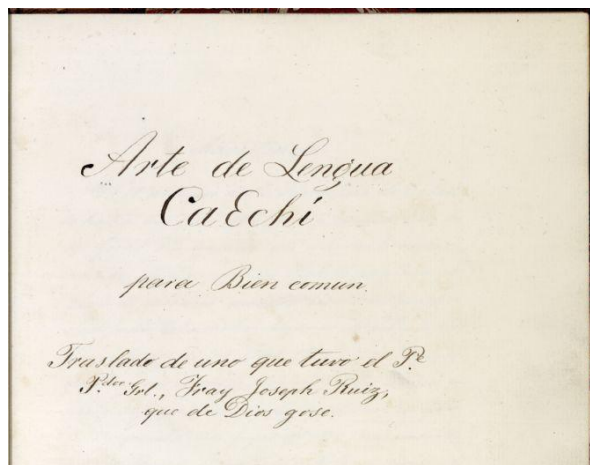 Arte de Lengua
CaEchí
para Bien comun.
Traslado de uno que tuvo el P.e
P.dor Grl., Fray Joseph Ruiz,
que de Dios gose.